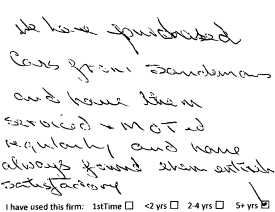 We have purchased
Cars from Sandemans
and have them
serviced + MOTed
regularly and have
always found them entirely
satisfactory
I have used this firm: 1st Time ☐ <2 yrs ☐ 2-4 yrs ☐ 5+ yrs ☑